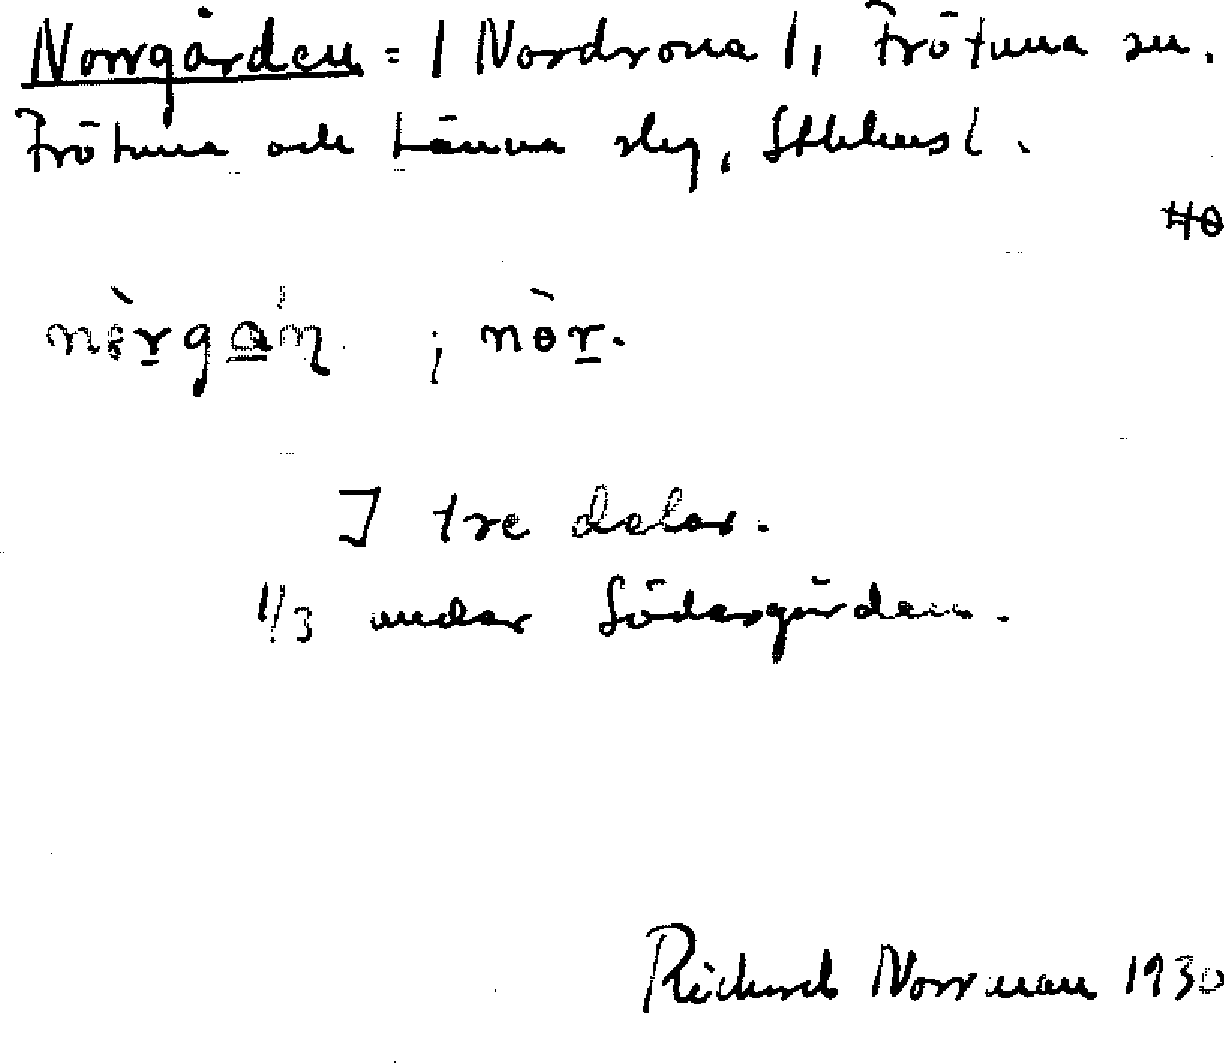 Norrgården = / Nordrona /, Frötuna sn.
Frötuna och Länna slg, Sthlms l.
nòrgɑ̀ɳ ; nòr.
I tre delar.
1/3 under Södergården.
Richard Norrman 1930